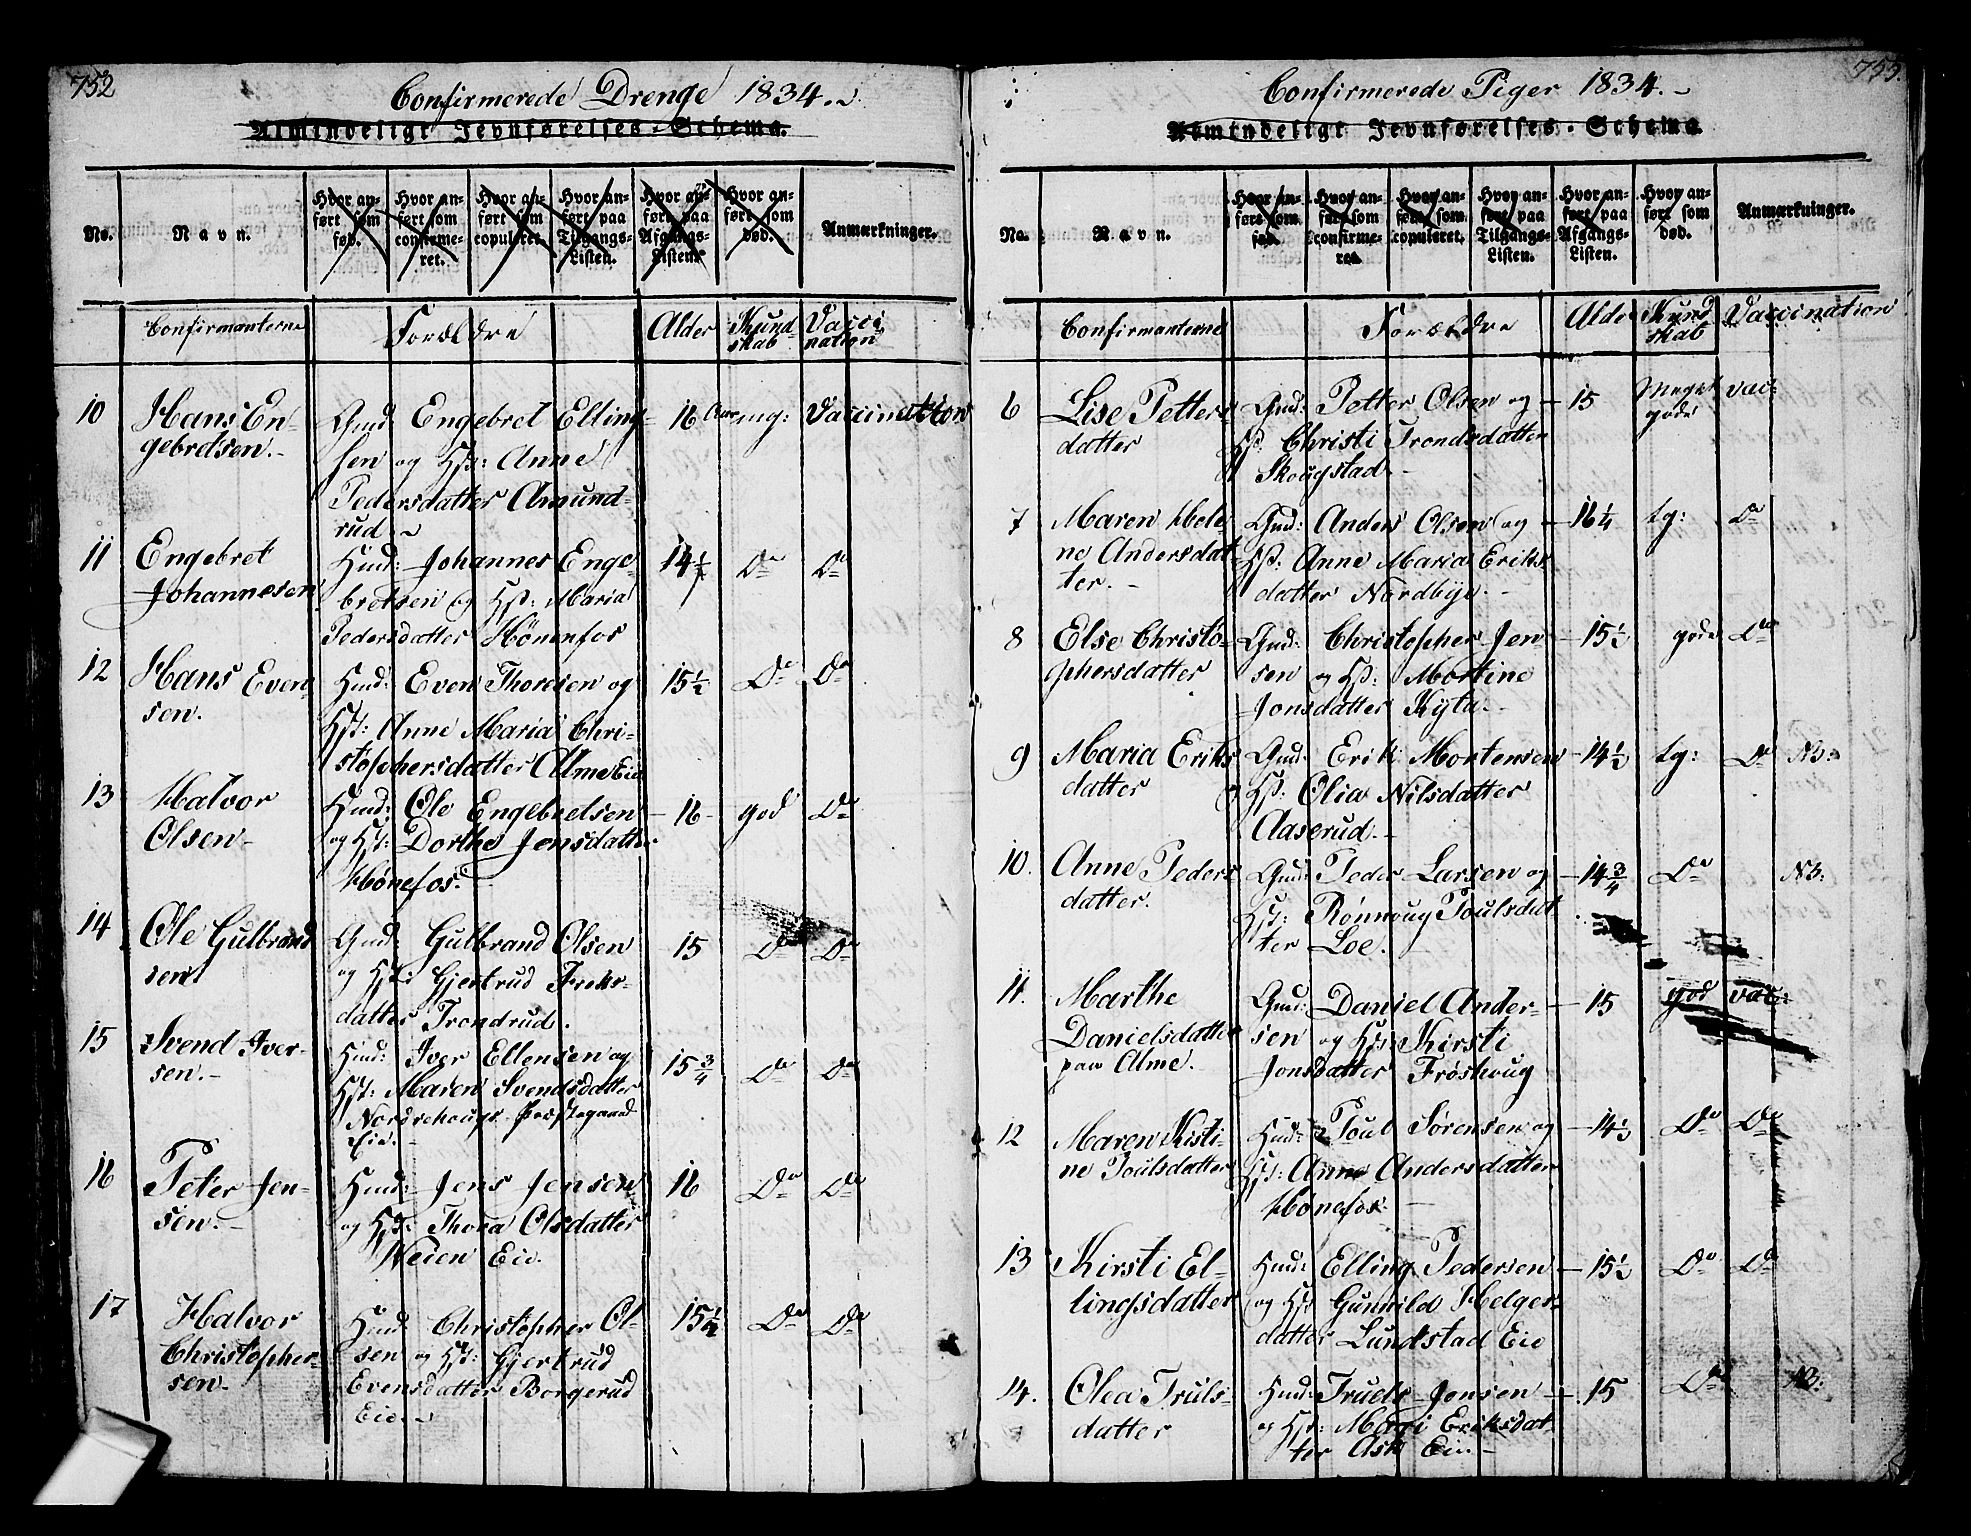 752
Confirmerede Drenge 1834.
Almindeligt Jevnførelses-Schema.
No.
Navn.
Hvor anført som fød.
Hvor anført som confirmeret.
Hvor anført som copuleret.
Hvor anført paa Tilgangs-Listen.
Hvor anført paa Afgangs-Listen.
Hvor anført som død.
Anmærkninger.
Confirmanterne
Forældre
Alder
Kundskab
Vaccination
10
Hans En-
gebretsen.
Gmd: Engebret Elling-
sen og Hst: Anne
Pedersdatter Amund-
rud
16 Aar
mg:
Vaccination
11
Engebret
Johannesen
Hmd: Johannes Enge-
bretsen og Hst: Maria
Pedersdatter Hönenfos
14½
Do
Do
12
Hans Even-
sen.
Hmd: Even Thoresen og
Hst: Anne Maria Chri-
stophersdatter Alme Eie
15½
Do
Do
13
Halvor
Olsen
Hmd: Ole Engebretsen
og Hst: Dorthe Jonsdatter
Hönefos.
16
god
Do
14
Ole Gulbrand
sen
Gmd: Gulbrand Olsen
og Hst: Gjertrud
datter Trondrud.
15
Do
Do
15
Svend Iver-
sen.
Hmd: Iver Ellensen og
Hst: Maren Svendsdatter
Nordrehougs Præstegaard
Eie.
15¾
Do
Do
16
Peter Jen-
sen.
Hmd: Jens Jensen
og Hst: Thora Olsdatter
Veien Eie.
16
Do
Do
17
Halvor
Christopher-
sen.
Hmd: Christopher Ol-
sen og Hst: Gjertrud
Evensdatter Borgerud
Eie.
15½
Do
Do
753.
Confirmerede Piger 1834.
Almindeligt Jevnførelses-Schema
No.
Navn.
Hvor anført som fød.
Hvor anført som confirmeret.
Hvor anført som copuleret.
Hvor anført paa Tilgangs-Listen.
Hvor anført paa Afgangs-Listen.
Hvor anført som død.
Anmærkninger.
Confirmanterne
Forældre
Alder
Kundskab
Vaccination
6
Lise Petters
datter
Gmd: Petter Olsen og
Hst: Christi Trondsdatter
Skougstad.
15
Meget
gode
vac:
7
Maren Hele
ne Andersdat
ter.
Gmd: Anders Olsen og
Hst: Anne Maria Eriks
datter Nordbye.
16¼
tg:
Do
8
Else Christo-
phersdatter
Gmd: Christopher Jen-
sen og Hst: Mortine
Jonsdatter Kyta.
15½
gode
Do
9
Maria Eriks
datter
Gmd: Erik Mortensen
og Hst: Olia Nilsdatter
Aaserud.
14½
tg:
Do
NB:
10.
Anne Peders
datter.
Gmd: Peder Larsen og
Hst: Rønnoug Poulsdat
ter Loe.
14¾
Do
NB:
11.
Marthe
Danielsdatter
paa Alme.
Gmd: Daniel Ander-
sen og Hst: Kirsti
Jonsdatter Frøshoug
15
god
vac:
12
Maren Kisti-
ne Poulsdatter
Hmd: Poul Sørensen og
Hst: Anne Andersdatter
Hönefos.
14½
Do
Do
13
Kirsti El-
lingsdatter
Hmd: Elling Pedersen
og Hst Gunnild Helges-
datter Lundstad Eie
15½
Do
Do
14.
Olea Truls-
datter
Hmd: Truels Jonsen
og Hst: Mari Eriksdat-
ter Ask Eie.
15
Do
NB: